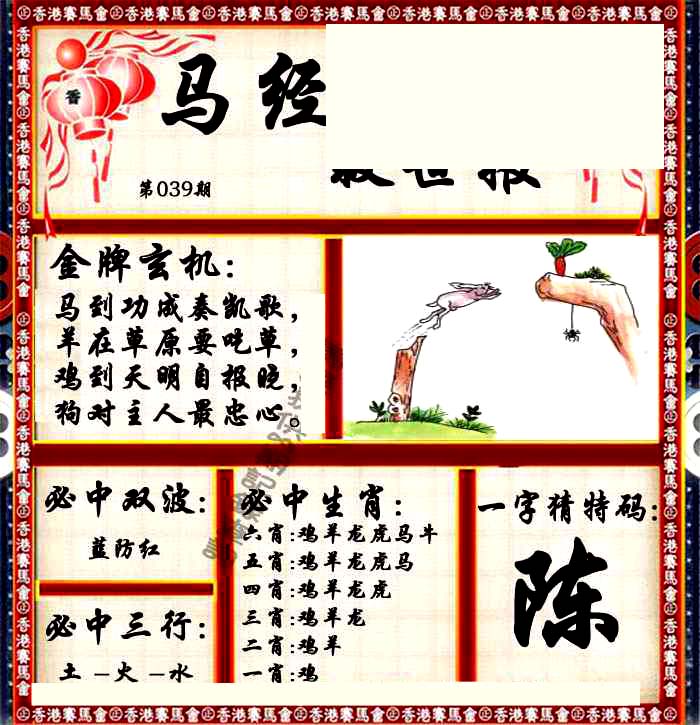 香港賽馬會㊣香港賽馬會㊣香港賽馬會㊣香港賽馬會㊣香港賽馬會㊣香港賽馬會㊣香港賽馬會
香
马经
救世报
第039期
金牌玄机:
马到功成奏凯歌,
羊在草原要吃草,
鸡到天明自报晓,
狗对主人最忠心。
必中双波:
蓝防红
必中三行:
土－火－水
必中生肖:
六肖:鸡羊龙虎马牛
五肖:鸡羊龙虎马
四肖:鸡羊龙虎
三肖:鸡羊龙
二肖:鸡羊
一肖:鸡
一字猜特码:
陈